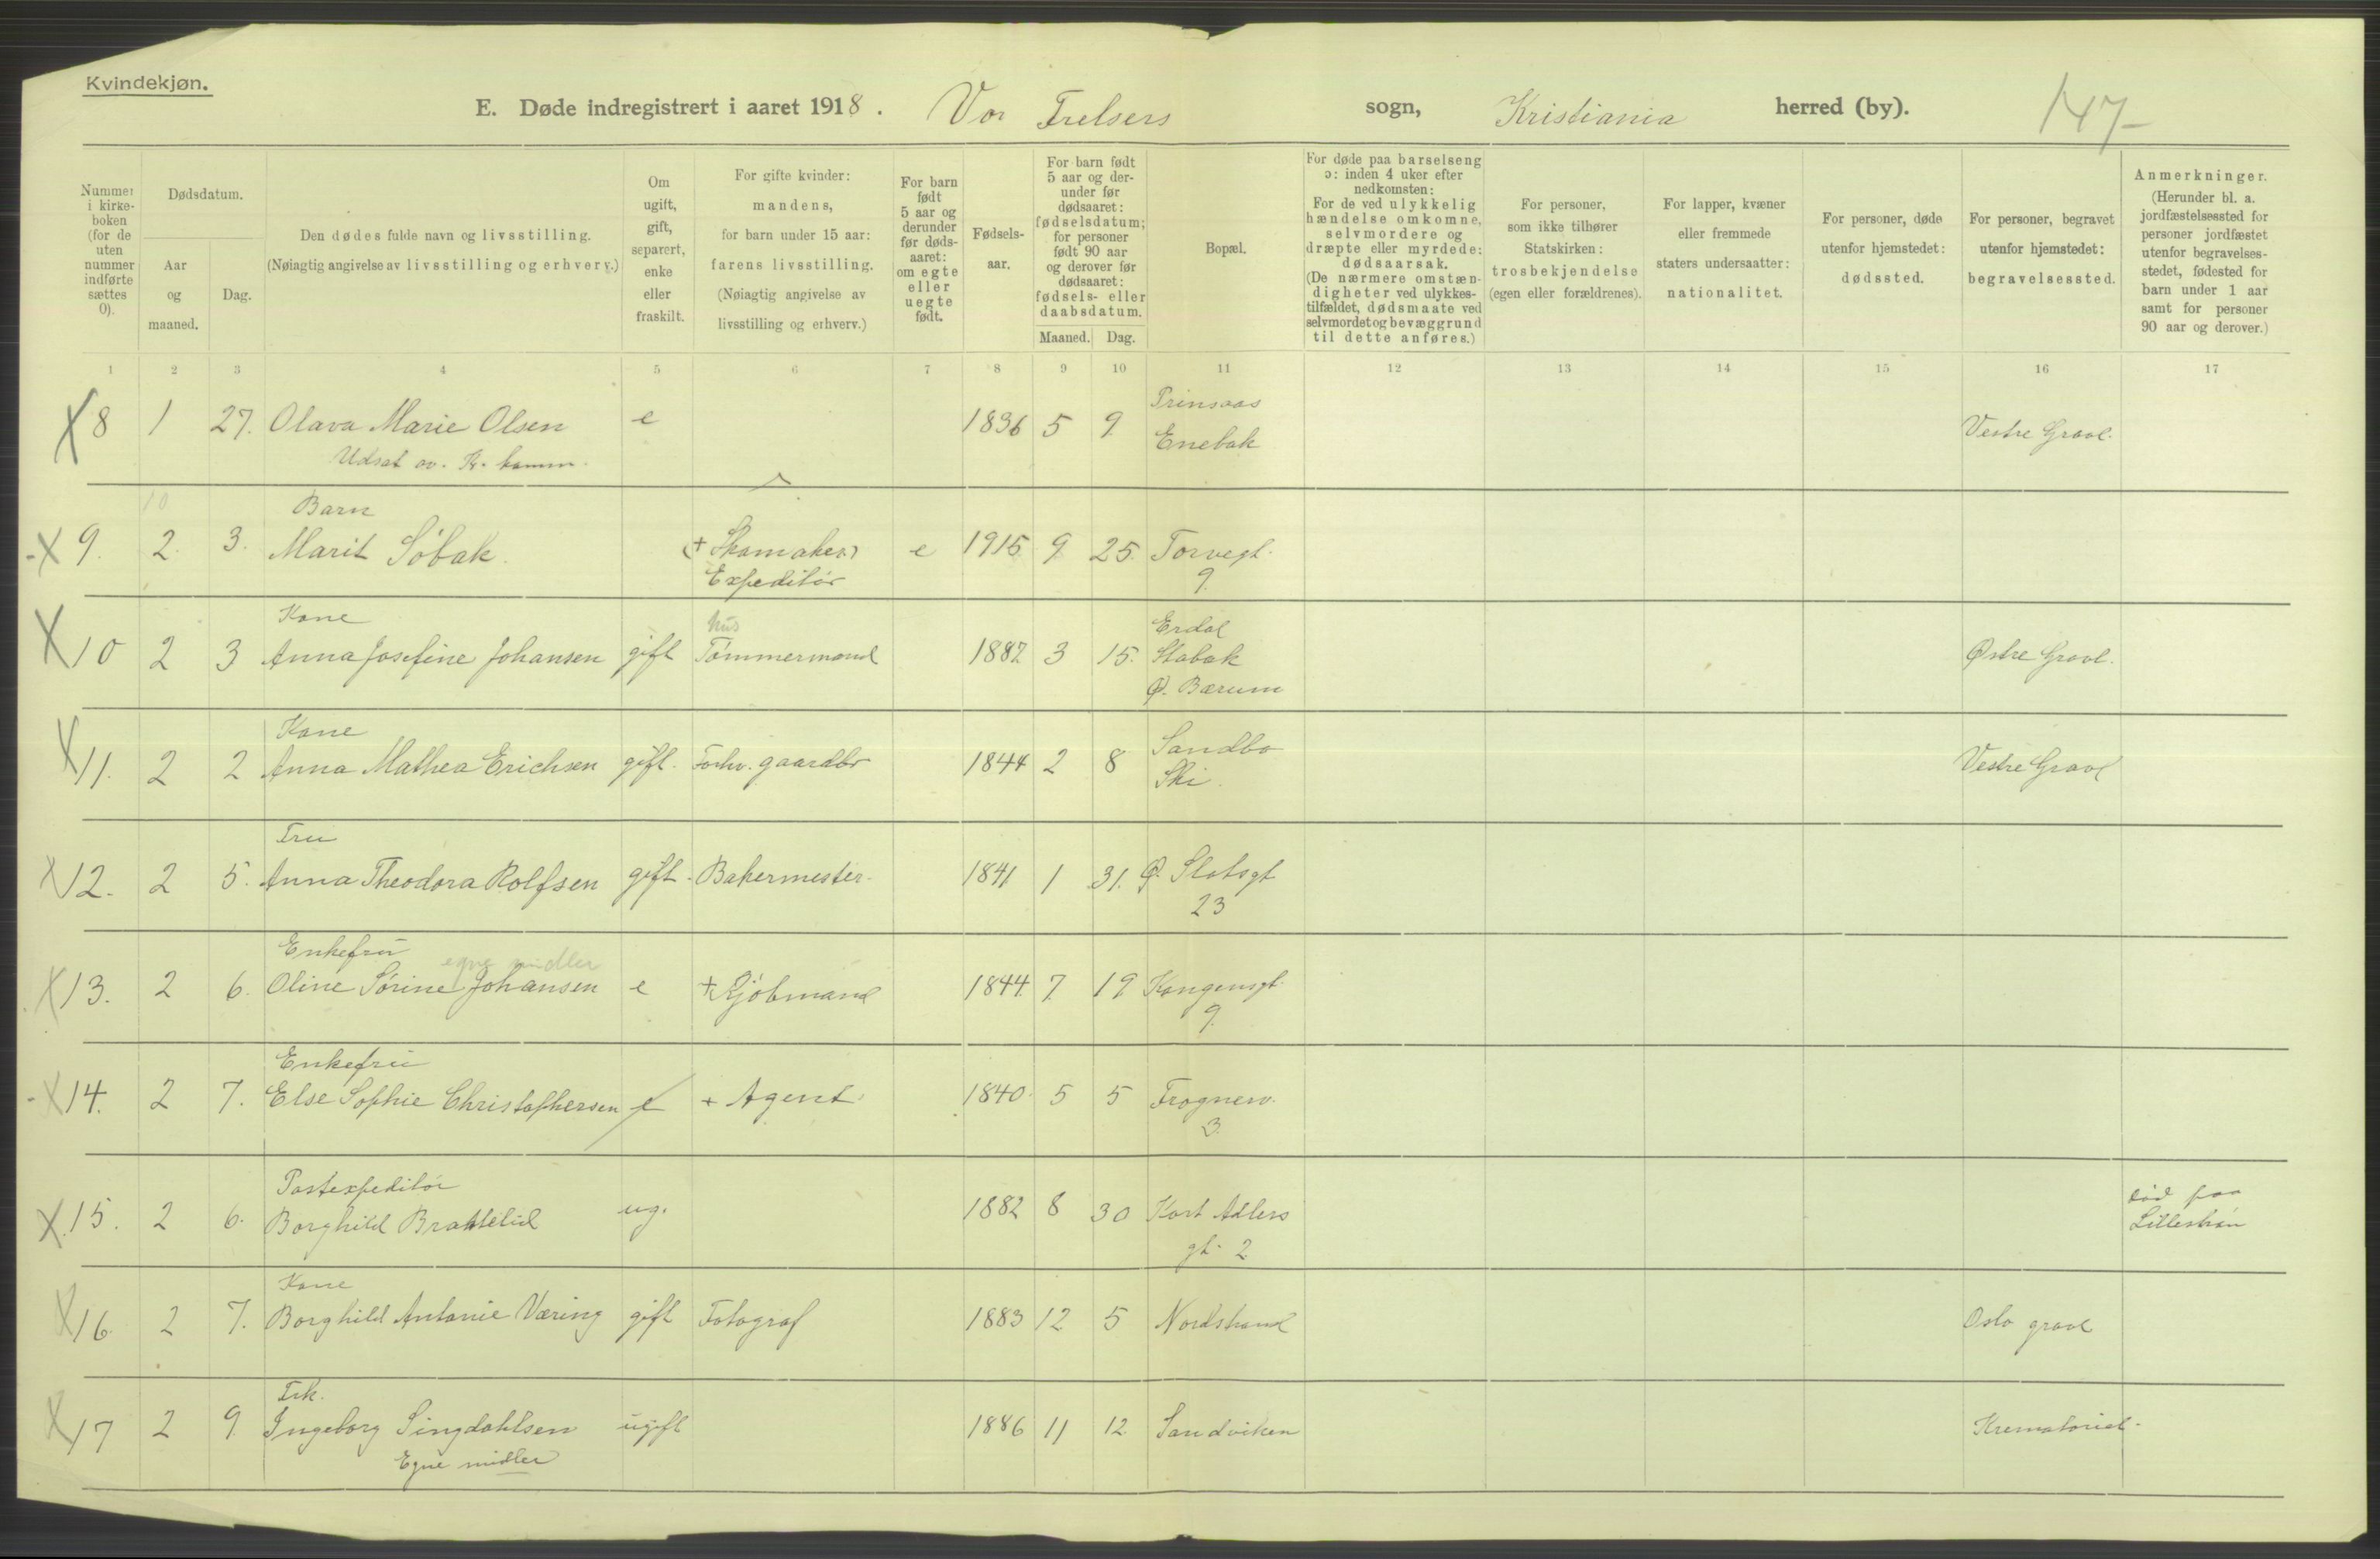 Kvindekjøn.
E. Døde indregistrert i aaret 1918. Vor Frelsers sogn, Kristiania herred (by). 147
Nummer i kirkeboken (for de uten nummer indførte sættes 0).
Dødsdatum.
Aar og maaned.
Dag.
Den dødes fulde navn og livsstilling.
(Nøiagtig angivelse av livsstilling og erhverv.)
Om ugift, gift, separert, enke eller fraskilt.
For gifte kvinder: mandens, for barn under 15 aar: farens livsstilling. (Nøiagtig angivelse av livsstilling og erhverv.)
For barn født 5 aar og derunder før dødsaaret: om egte eller uegte født.
Fødselsaar.
For barn født 5 aar og derunder før dødsaaret: fødselsdatum; for personer født 90 aar og derover før dødsaaret: fødsels- eller daabsdatum.
Maaned. Dag.
Bopæl.
For døde paa barselseng ɔ: inden 4 uker efter nedkomsten: For de ved ulykkelig hændelse omkomne, selvmordere og dræpte eller myrdede: dødsaarsak. (De nærmere omstændigheter ved ulykkestilfældet, dødsmaate ved selvmordet og bevæggrund til dette anføres.)
For personer, som ikke tilhører Statskirken: trosbekjendelse (egen eller forældrenes).
For lapper, kvæner eller fremmede staters undersaatter: nationalitet.
For personer, døde utenfor hjemstedet: dødssted.
For personer, begravet utenfor hjemstedet: begravelsessted.
Anmerkninger. (Herunder bl. a. jordfæstelsessted for personer jordfæstet utenfor begravelsesstedet, fødested for barn under 1 aar samt for personer 90 aar og derover.)
1 2 3 4 5 6 7 8 9 10 11 12 13 14 15 16 17
Prinsaas
X 8 1 27. Olava Marie Olsen e 1836 5 9 Enebak Vestre Gravl.
Udsat av. Kr. komm.
10 Barn
X 9. 2. 3. Marit Søbak. (+ Skomaker) e 1915 9. 25. Torvegt.
Expeditør 9.
Kone hus Erdal
X 10 2 3 Anna Josefine Johansen gift Tømmermand 1882 3 15. Stabak Østre Gravl.
Ø. Bærum
Kone Sandbo
X 11. 2 2 Anna Mathea Erichsen gift. Forhv. gaardbr 1844 2 8 Ski. Vestre Gravl
Fru
X 12. 2 5. Anna Theodora Rolfsen gift. Bakermester. 1841 1 31. Ø. Slotsgt
23
Enkefru egne midler
X 13. 2 6. Oline Sørine Johansen e + Kjøbmand 1844. 7. 19 Kongensgt.
9.
Enkefru
X 14. 2 7. Else Sophie Christophersen e + Agent. 1840. 5 5 Frognerv.
3.
Postexpeditør død paa
X 15. 2 6. Borghild Brattelid ug. 1882 8 30 Kort Adlers Lillestrøm
gt. 2
Kone
X 16. 2 7. Borghild Antonie Væring gift Fotograf 1883 12 5 Nordstrand Oslo gravl
Frk.
X 17 2 9. Ingeborg Singdahlsen ugift 1886 11 12. Sandviken Krematoriet.
Egne midler